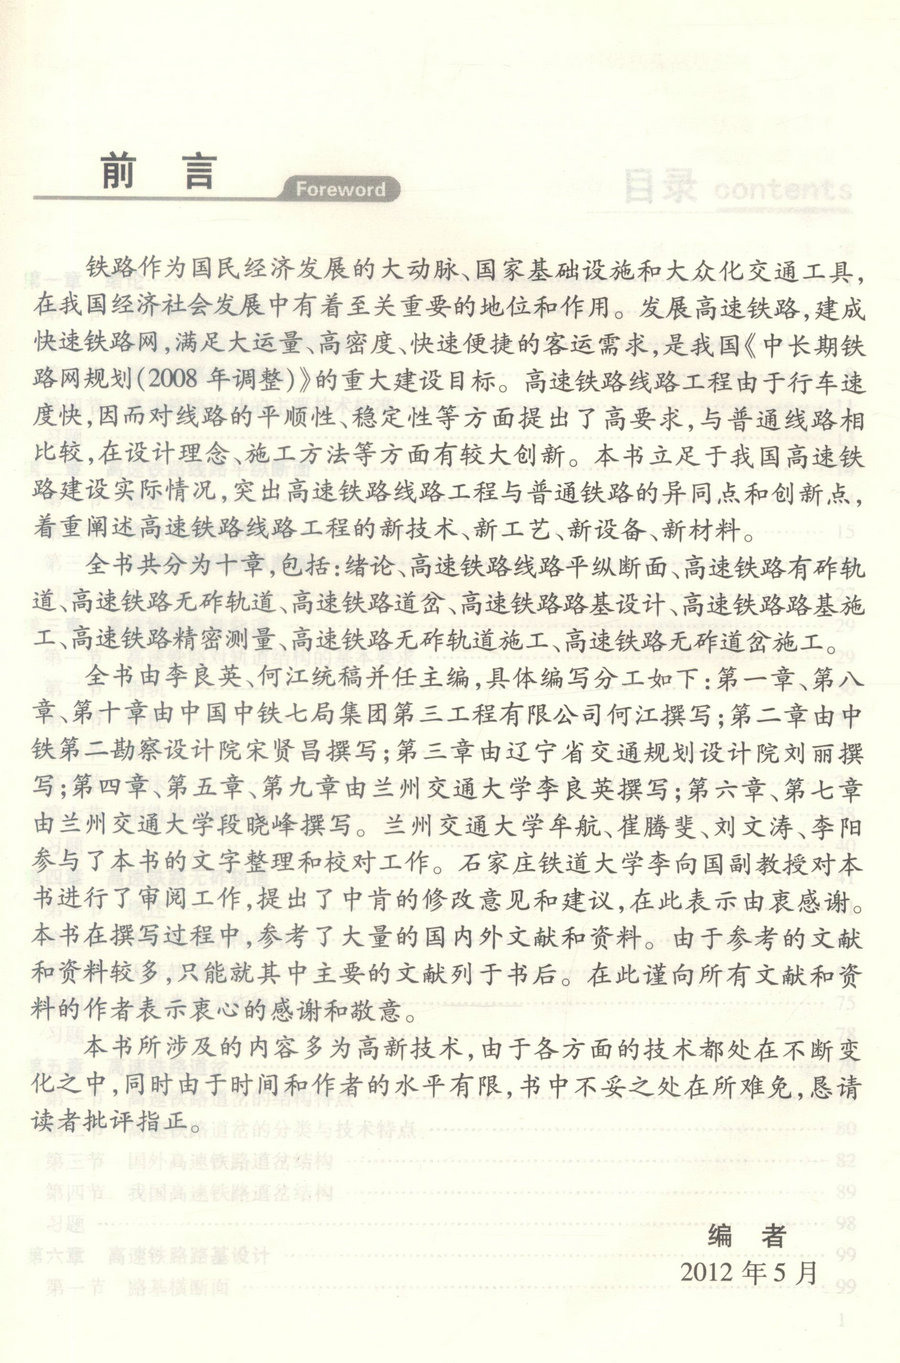 前 言
Foreword
目录 contents
铁路作为国民经济发展的大动脉、国家基础设施和大众化交通工具,
在我国经济社会发展中有着至关重要的地位和作用。发展高速铁路,建成
快速铁路网,满足大运量、高密度、快速便捷的客运需求,是我国《中长期铁
路网规划(2008 年调整)》的重大建设目标。高速铁路线路工程由于行车速
度快,因而对线路的平顺性、稳定性等方面提出了高要求,与普通线路相
比较,在设计理念、施工方法等方面有较大创新。本书立足于我国高速铁
路建设实际情况,突出高速铁路线路工程与普通铁路的异同点和创新点,
着重阐述高速铁路线路工程的新技术、新工艺、新设备、新材料。
全书共分为十章,包括:绪论、高速铁路线路平纵断面、高速铁路有砟轨
道、高速铁路无砟轨道、高速铁路道岔、高速铁路路基设计、高速铁路路基施
工、高速铁路精密测量、高速铁路无砟轨道施工、高速铁路无砟道岔施工。
全书由李良英、何江统稿并任主编,具体编写分工如下:第一章、第八
章、第十章由中国中铁七局集团第三工程有限公司何江撰写;第二章由中
铁第二勘察设计院宋贤昌撰写;第三章由辽宁省交通规划设计院刘丽撰
写;第四章、第五章、第九章由兰州交通大学李良英撰写;第六章、第七章
由兰州交通大学段晓峰撰写。兰州交通大学牟航、崔腾斐、刘文涛、李阳
参与了本书的文字整理和校对工作。石家庄铁道大学李向国副教授对本
书进行了审阅工作,提出了中肯的修改意见和建议,在此表示由衷感谢。
本书在撰写过程中,参考了大量的国内外文献和资料。由于参考的文献
和资料较多,只能就其中主要的文献列于书后。在此谨向所有文献和资
料的作者表示衷心的感谢和敬意。
本书所涉及的内容多为高新技术,由于各方面的技术都处在不断变
化之中,同时由于时间和作者的水平有限,书中不妥之处在所难免,恳请
读者批评指正。
第三节 国外高速铁路道岔结构 82
第四节 我国高速铁路道岔结构 89
习题 98
第六章 高速铁路路基设计 99
第一节 路基横断面 99
编 者
2012 年 5 月
1